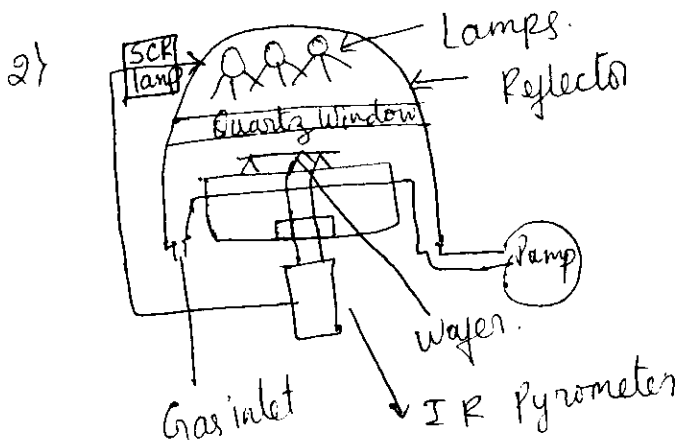 2)
SCR
lamp
Lamps.
Reflector
Quartz Window
Pump
Wafer.
Gas inlet
IR Pyrometer